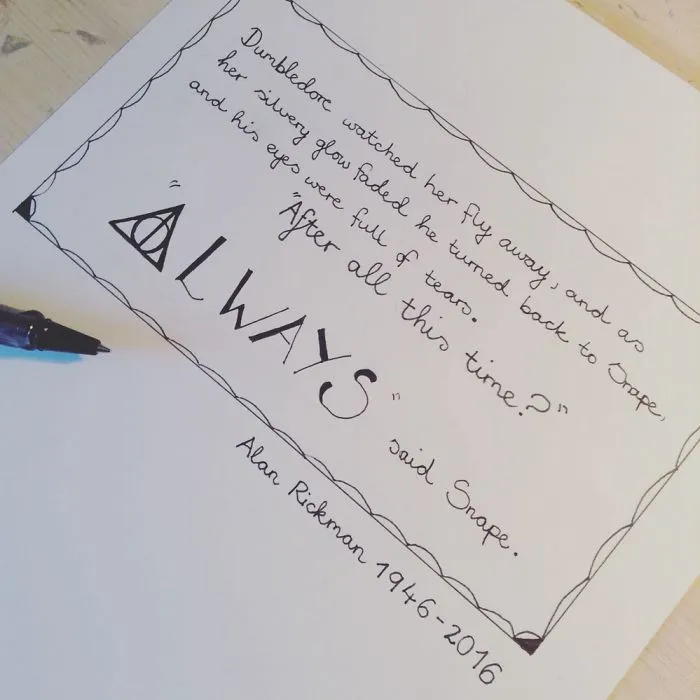 Dumbledore watched her fly away, and as
her silvery glow faded he turned back to Snape,
and his eyes were full of tears.
"After all this time?"
"ALWAYS" said Snape.
Alan Rickman 1946-2016